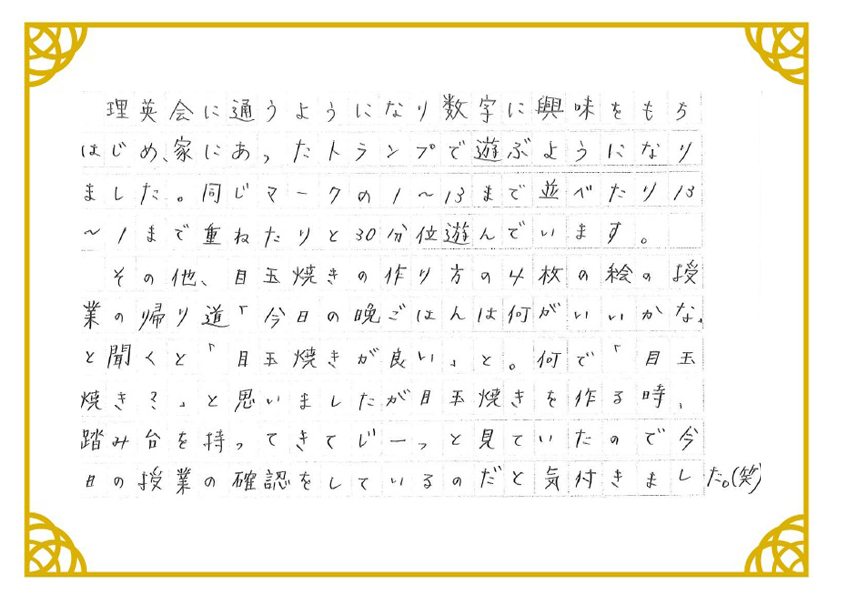 理英会に通うようになり数字に興味をもち
はじめ、家にあったトランプで遊ぶようになり
ました。同じマークの1〜13まで並べたり13
〜1まで重ねたりと30分位遊んでいます。
その他、目玉焼きの作り方の4枚の絵の授
業の帰り道「今日の晩ごはんは何がいいかな」
と聞くと「目玉焼きが良い」と。何で「目玉
焼き?」と思いましたが目玉焼きを作る時、
踏み台を持ってきてじーっと見ていたので今
日の授業の確認をしているのだと気付きました。(笑)